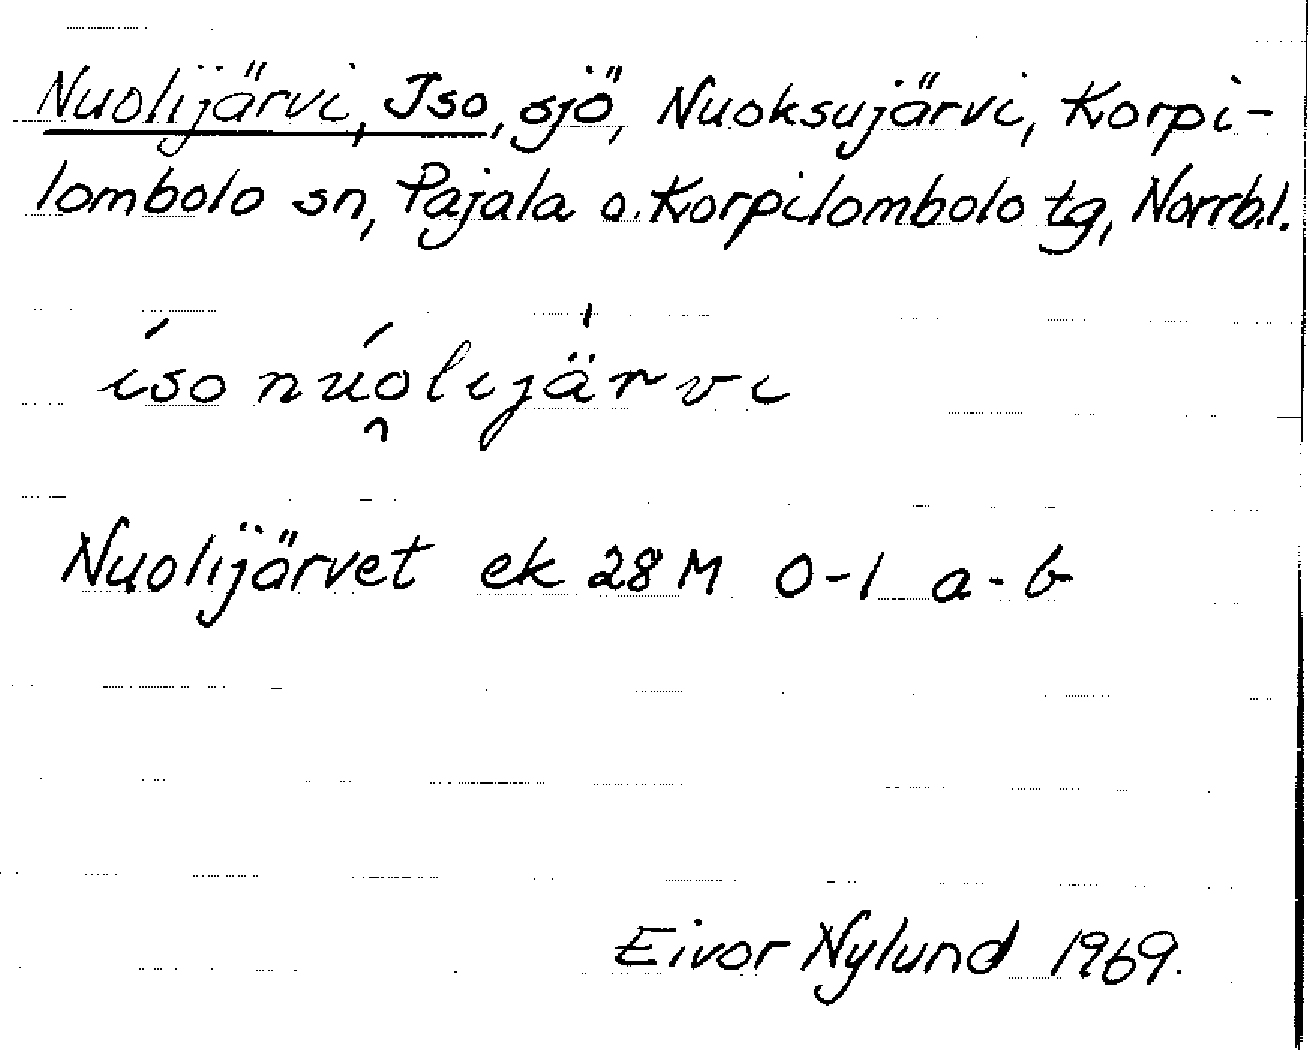 Nuolijärvi, Iso, sjö, Nuoksujärvi, Korpi-
lombolo sn, Pajala o. Korpilombolo tg, Norrb.l.
íso núo̯lijä̀rvi
Nuolijärvet ek 28 M 0-1 a-b
Eivor Nylund 1969.